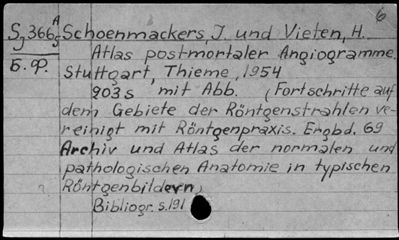 6
Sj366 A/5 Schoenmackers, J. und Vieten, H.
Б.Ф. Atlas postmortaler Angiogramme.
Stuttgart, Thieme, 1954
203s mit Abb. (Fortschritte auf
dem Gebiete der Röntgenstrahlen ve-
reinigt mit Röntgenpraxis. Ergbd. 69
Archiv und Atlas der normalen und
pathologischen Anatomie in typischen
Röntgenbildern)
Bibliogr. s.191